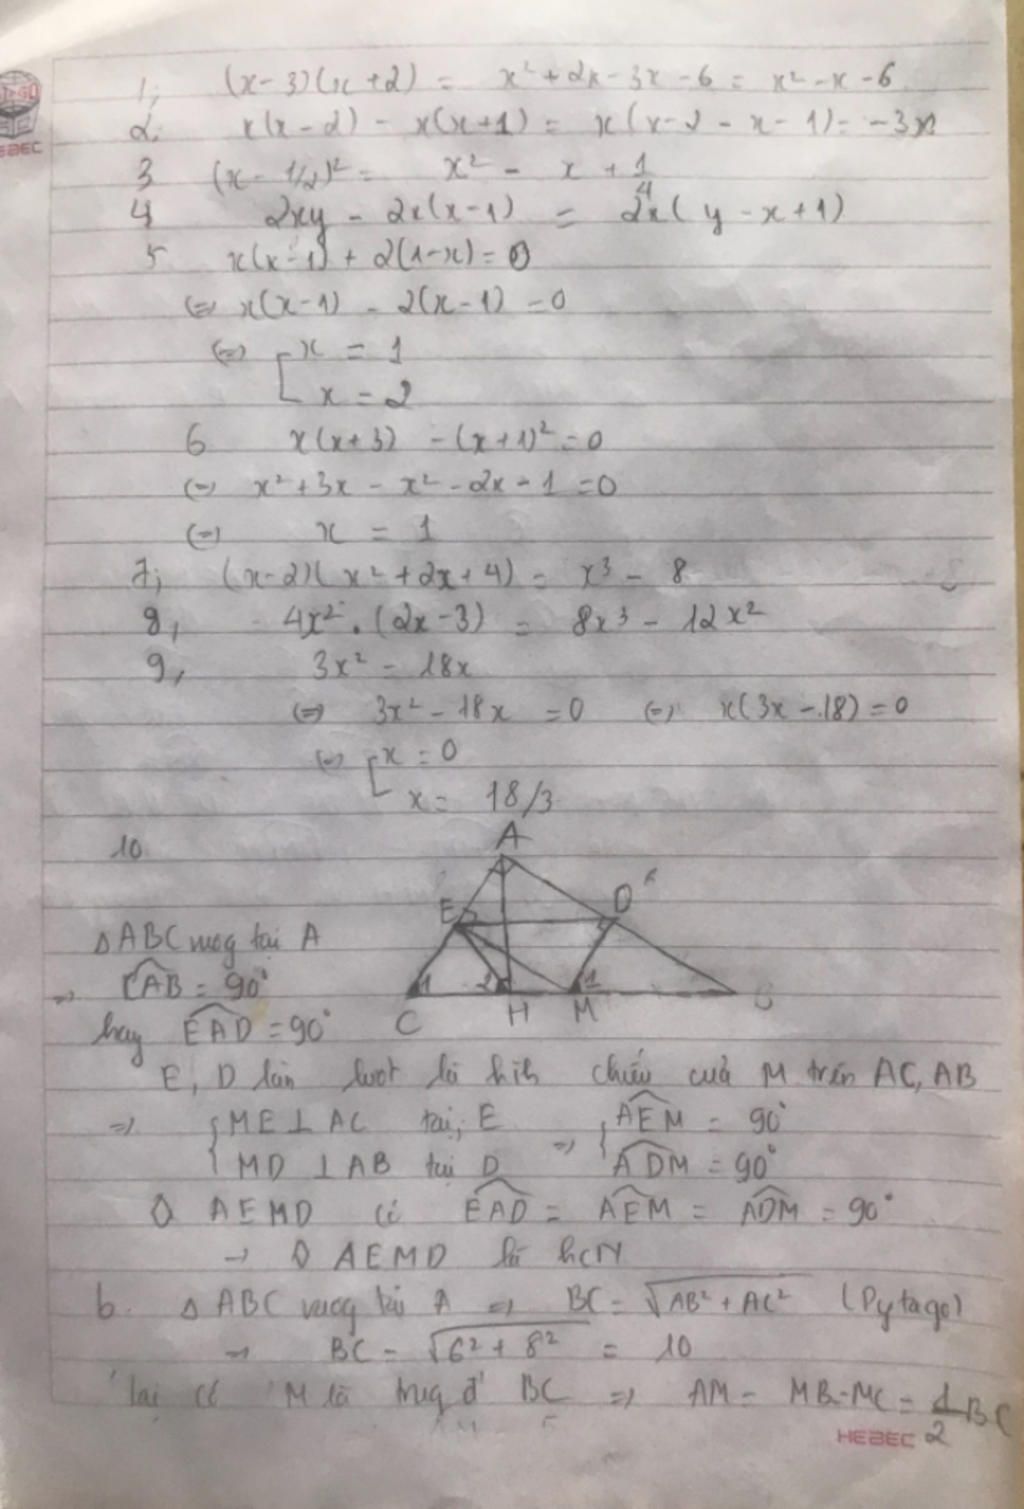 1, (x-3)(x+2) = x² + 2x - 3x - 6 = x² - x - 6
2, x(x-2) - x(x+1) = x(x-2-x-1) = -3x
3 (x - 1/2)² = x² - x + 1/4
4 2xy - 2x(x-1) = 2x(y-x+1)
5 x(x-1) + 2(1-x) = 0
(=) x(x-1) - 2(x-1) = 0
(=) [ x = 1
x = 2
6 x(x+3) - (x+1)² = 0
(=) x² + 3x - x² - 2x - 1 = 0
(=) x = 1
7, (x-2)(x²+2x+4) = x³ - 8
8, 4x² . (2x-3) = 8x³ - 12x²
9, 3x² - 18x
(=) 3x² - 18x = 0 (=) x(3x-18) = 0
(=) [ x = 0
x = 18/3
10
A
E D
1 2 1
C H M B
Δ ABC vuog tại A
=> CAB = 90°
hay EAD = 90°
E, D lần lượt là hìh chiếu của M trên AC, AB
=> { ME ⊥ AC tại E => { AEM = 90°
MD ⊥ AB tại D ADM = 90°
◊ AEMD có EAD = AEM = ADM = 90°
→ ◊ AEMD là hcN
b. Δ ABC vuog tại A => BC = √AB² + AC² (Pytago)
→ BC = √6² + 8² = 10
lại có M là trug đ' BC => AM = MB = MC = 1/2 BC
HEBEC